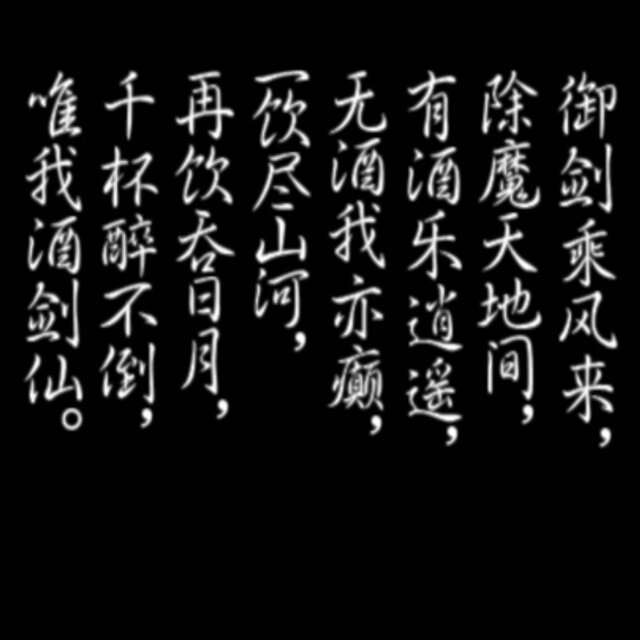 御剑乘风来，
除魔天地间，
有酒乐逍遥，
无酒我亦癫，
一饮尽山河，
再饮吞日月，
千杯醉不倒，
唯我酒剑仙。